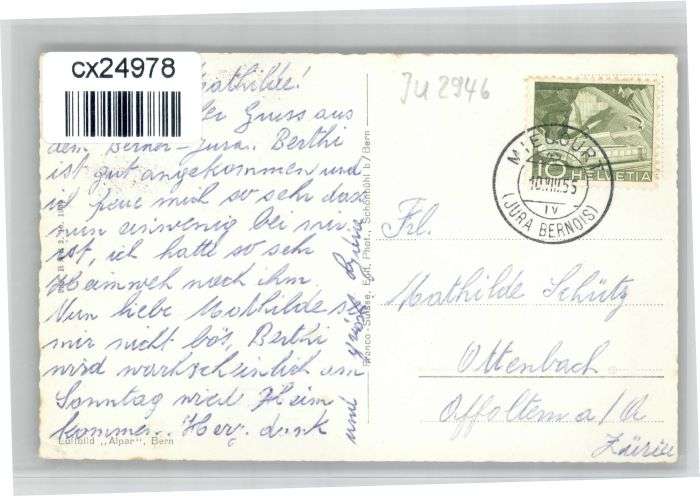 cx24978
Mathilde!
Gruss aus
dem Berner-Jura. Berthi
ist gut angekommen und
ich freue mich so sehr dass
nun ein wenig bei mir
ist, ich hatte so sehr
Heimweh nach ihm.
Nun liebe Mathilde sei
mir nicht bös, Berthi
wird warscheinlich am
Sonntag wied Heim
kommen. Herz. dank
und grüsst
Luftbild „Alpar", Bern
Franco-Suisse, Edit. Phot., Schönbühl b/Bern
JU 2946
10 HELVETIA
MIECOURT
10.VIII.55
IV
(JURA BERNOIS)
Frl.
Mathilde Schütz
Ottenbach
Affoltern a/A
Zürich